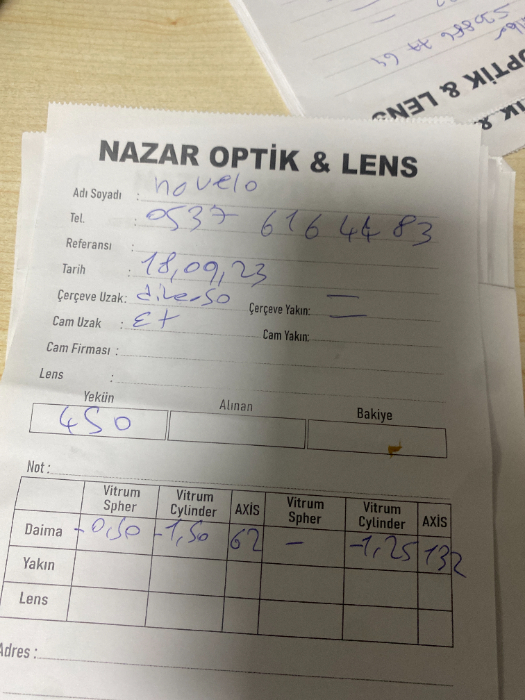 OPTİK & LENS
NAZAR OPTİK & LENS
Adı Soyadı : novelo
Tel. : 0537 616 44 83
Referansı :
Tarih : 18,09,23
Çerçeve Uzak: diverso Çerçeve Yakın: —
Cam Uzak : Et Cam Yakın: —
Cam Firması :
Lens :
Yekün Alınan Bakiye
450
Not :
Vitrum Spher Vitrum Cylinder AXİS Vitrum Spher Vitrum Cylinder AXİS
Daima -0,50 -1,50 62 — -1,25 132
Yakın
Lens
Adres :